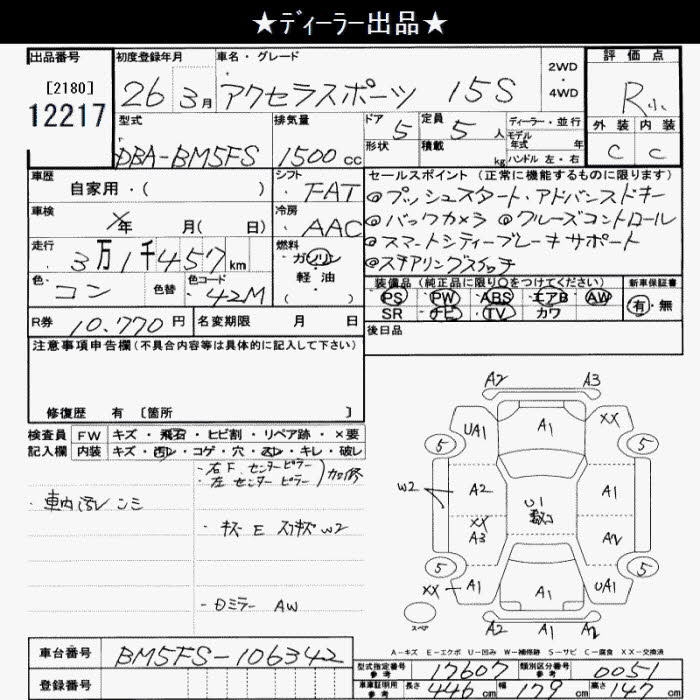 ★ディーラー出品★
出品番号 初度登録年月 車名・グレード 2WD ・ 4WD 評価点
[2180] 26 3月 アクセラスポーツ 15S R小
12217
型式 排気量 ドア 5 定員 5人 ディーラー・並行 外装 内装
形状 積載 kg モデル年式 年 ハンドル 左・右
DBA-BM5FS 1500cc C C
車歴 シフト セールスポイント (正常に機能するものに限ります)
自家用・( ) FAT ◎プッシュスタート・アドバンスドキー
車検 年 月( 日) 冷房 AAC ◎バックカメラ ◎クルーズコントロール
走行 3万1千457km 燃料 ガソリン 軽・油 ( ) ◎スマートシティーブレーキサポート
◎ステアリングスイッチ
色 コン 色替 色コード 42M 装備品(純正品に限り○をつけてください) 新車保証書
PS PW ABS エアB AW 有・無
SR ナビ TV カワ
R券 10.770円 名変期限 月 日 後日品
注意事項申告欄(不具合内容等は具体的に記入して下さい)
修復歴 有 [箇所 ]
検査員 FW キズ・飛石・ヒビ割・リペア跡・×要
記入欄 内装 キズ・汚レ・コゲ・穴・スレ・キレ・破レ
・右F、センターピラー
・左センターピラー 加修
・車内汚レ シミ
・キズ E スリキズ W2
・Dミラー AW
A2 A3
UA1 A1 XX
5 5
W2 A2 U1 A1
XX A3 A2
5 5
XX A1 A1 UA1
スペア A2 A1 A2
A-キズ E-エクボ U-凹み W-補修跡 S-サビ C-腐食 XX-交換済
車台番号 BM5FS-106342
型式指定番号 参考 17607 類別区分番号 参考 0051
登録番号 車庫証明用 参考 長さ 446cm 幅 179cm 高さ 147cm